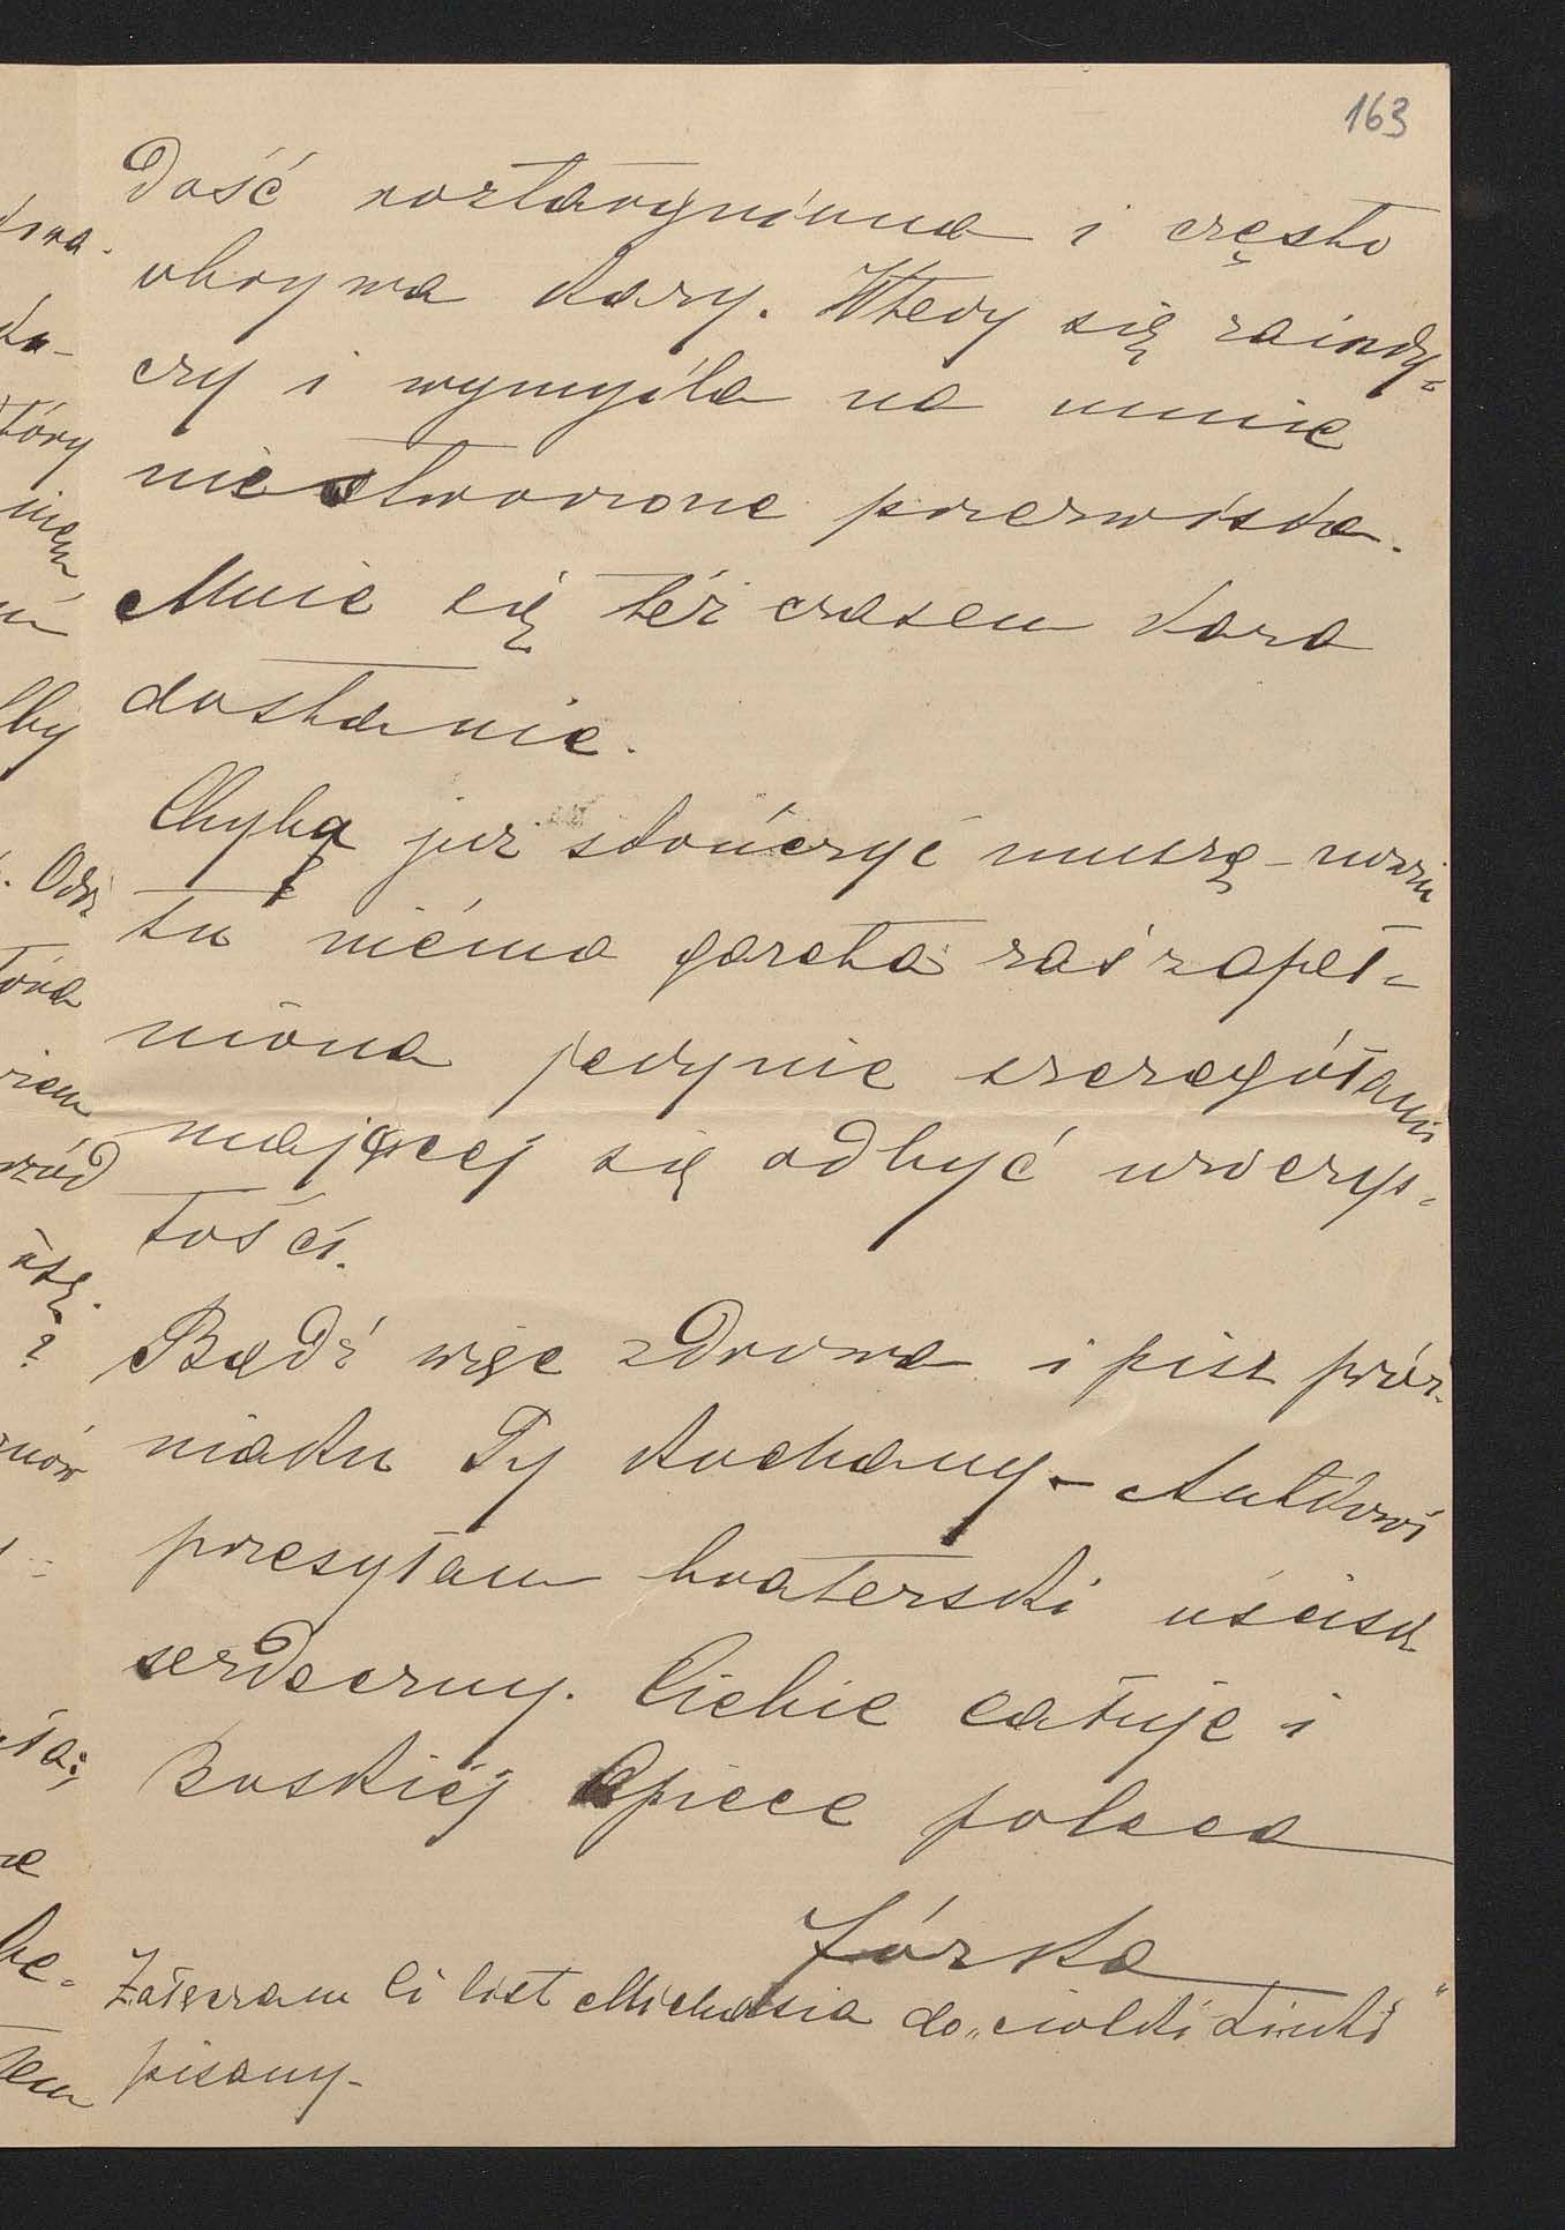 163
Dość roztargniona i często
obrywa kary. Wtedy się zaindy-
czy i wymyśla na mnie
niestworzone przezwiska.
Mnie się też czasem kara
dostanie.
Chyba już skończyć muszę –
tu niéma gazeta zaś zapeł-
niona jedynie szczegółami
mającej się odbyć uroczys-
tości.
Bądź więc zdrowa i pisz próż-
niaku Ty kochany – Antkowi
przesyłam braterski uścisk
serdeczny. Ciebie całuję i
Boskiéj Opiece poleca
Józka
Załączam Ci list Michasia do „ciolki Linki"
pisany –